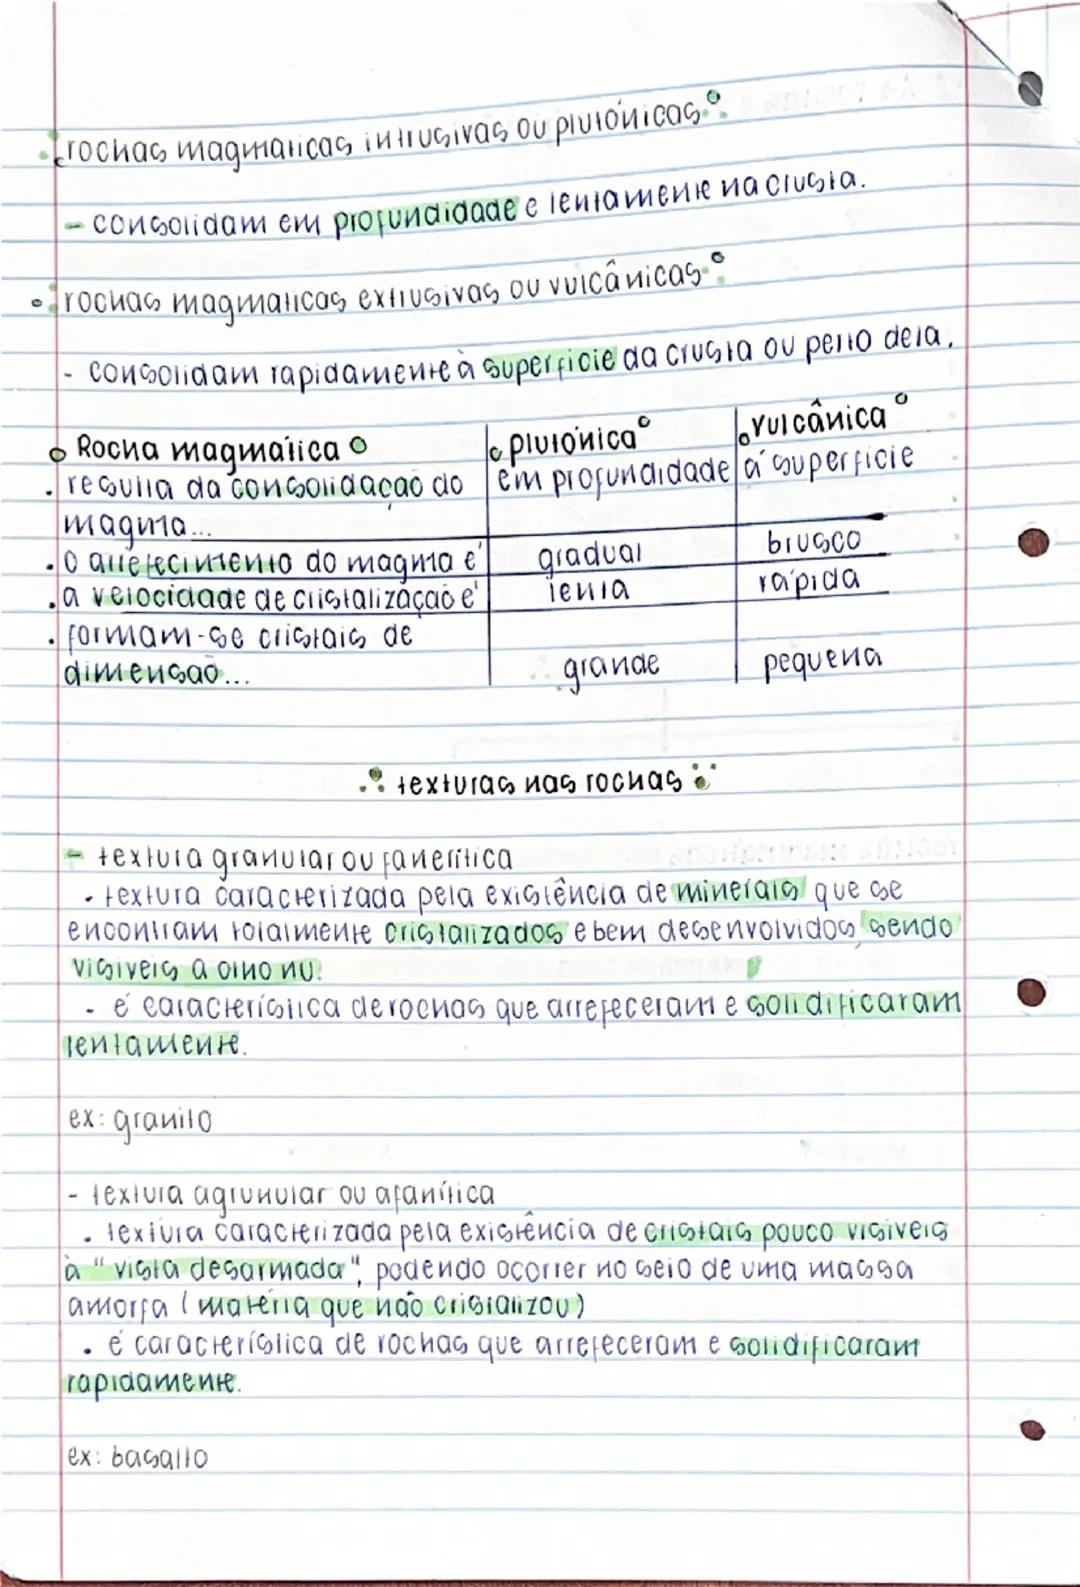 rochas magmáticas intrusivas ou plutónicas:
- consolidam em profundidade e lentamente na crusta.
rochas magmáticas extrusivas ou vulcânicas:
- consolidam rapidamente à superfície da crusta ou perto dela.
Rocha magmática plutónica vulcânica
. resulta da consolidação do em profundidade à superfície
magma...
. o arrefecimento do magma é gradual brusco
. a velocidade de cristalização é lenta rápida
. formam-se cristais de
dimensão... grande pequena
texturas nas rochas
- textura granular ou fanerítica
. textura caracterizada pela existência de minerais que se
encontram totalmente cristalizados e bem desenvolvidos, sendo
visíveis a olho nu.
. é característica de rochas que arrefeceram e solidificaram
lentamente.
ex: granito
- textura agrunular ou afanítica
. textura caracterizada pela existência de cristais pouco visíveis
à "vista desarmada", podendo ocorrer no seio de uma massa
amorfa (matéria que não cristalizou)
. é característica de rochas que arrefeceram e solidificaram
rapidamente.
ex: basalto